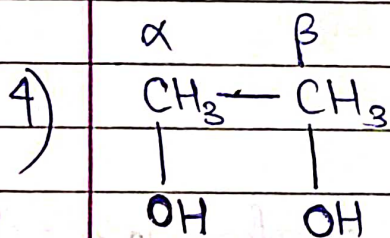 α β
4) CH₃—CH₃
OH OH